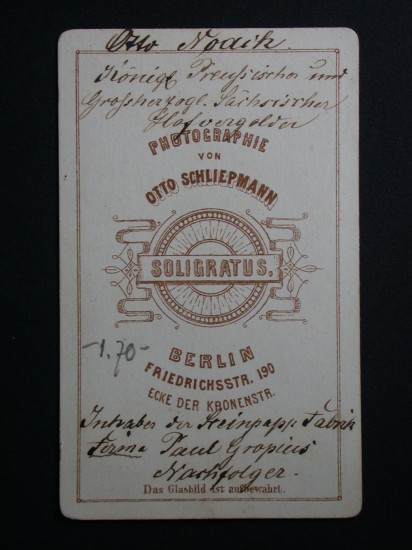 Otto Noack.
Königl Preussischer und
Grossherzogl. Sächsischer
Hofvergolder
PHOTOGRAPHIE
VON
OTTO SCHLIEPMANN
SOLIGRATUS.
-1.70-
BERLIN
FRIEDRICHSSTR. 190
ECKE DER KRONENSTR.
Inhaber der Steinpapp Fabrik
Firma Paul Gropius
Nachfolger.
Das Glasbild ist aufbewahrt.